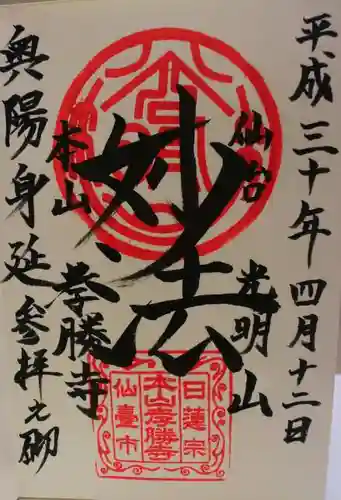 平成三十年四月十二日
仙台
光明山
妙法
本山
孝勝寺
奥陽身延参拝之砌
日蓮宗
本山孝勝寺
仙臺市